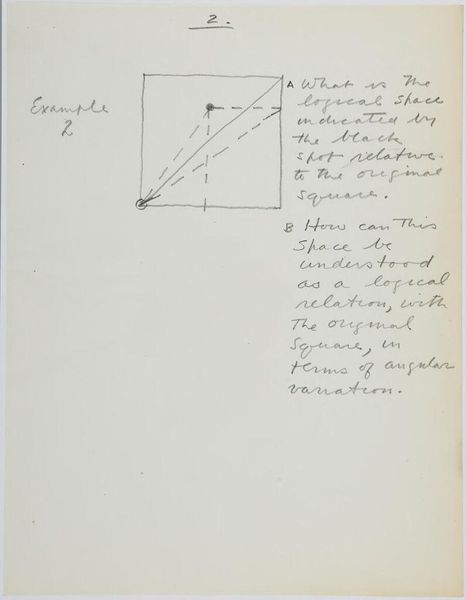 2.
Example
2
A What is the
logical space
indicated by
the black
spot relative
to the original
square.
B How can This
space be
understood
as a logical
relation, with
The original
Square, in
terms of angular
variation.